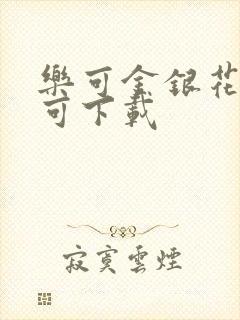 樂可金銀花
可下載
寂寞雲煙